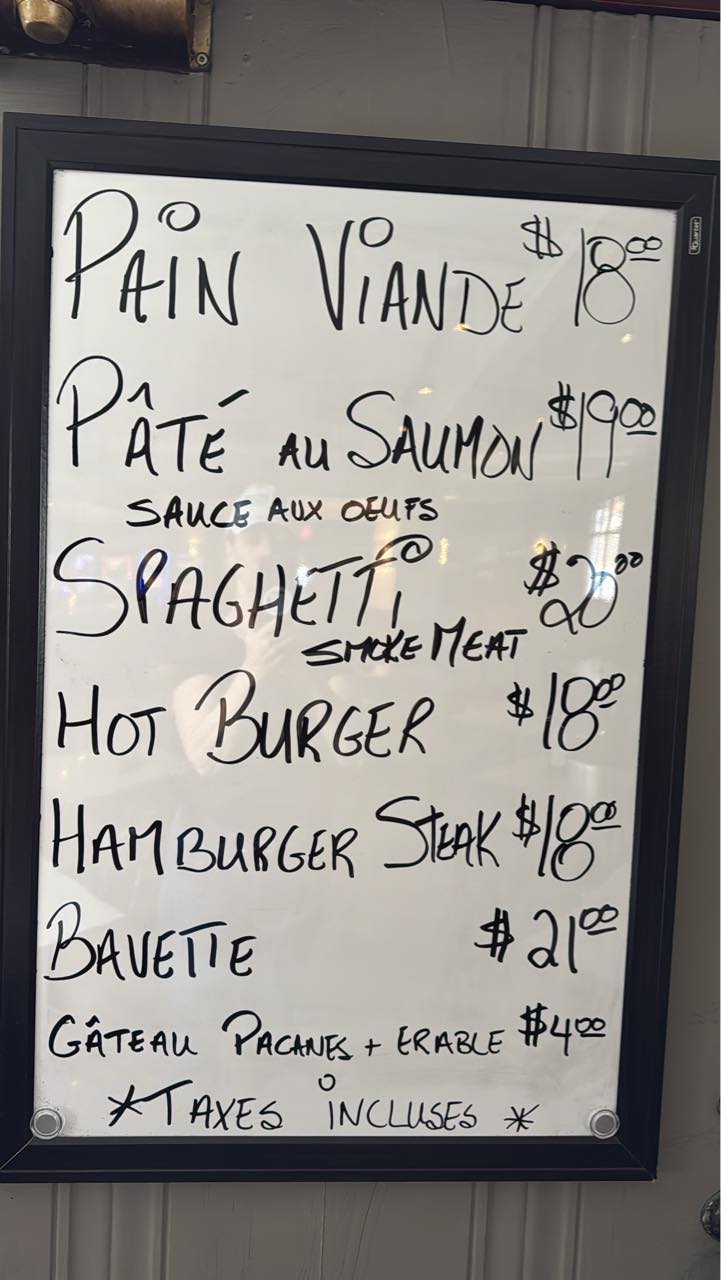 PAIN VIANDE $18.00
PÂTÉ AU SAUMON $19.00
SAUCE AUX OEUFS
SPAGHETTI $20.00
SMOKE MEAT
HOT BURGER $18.00
HAMBURGER STEAK $18.00
BAVETTE $21.00
GÂTEAU PACANES + ERABLE $4.00
*TAXES INCLUSES *
Quartet